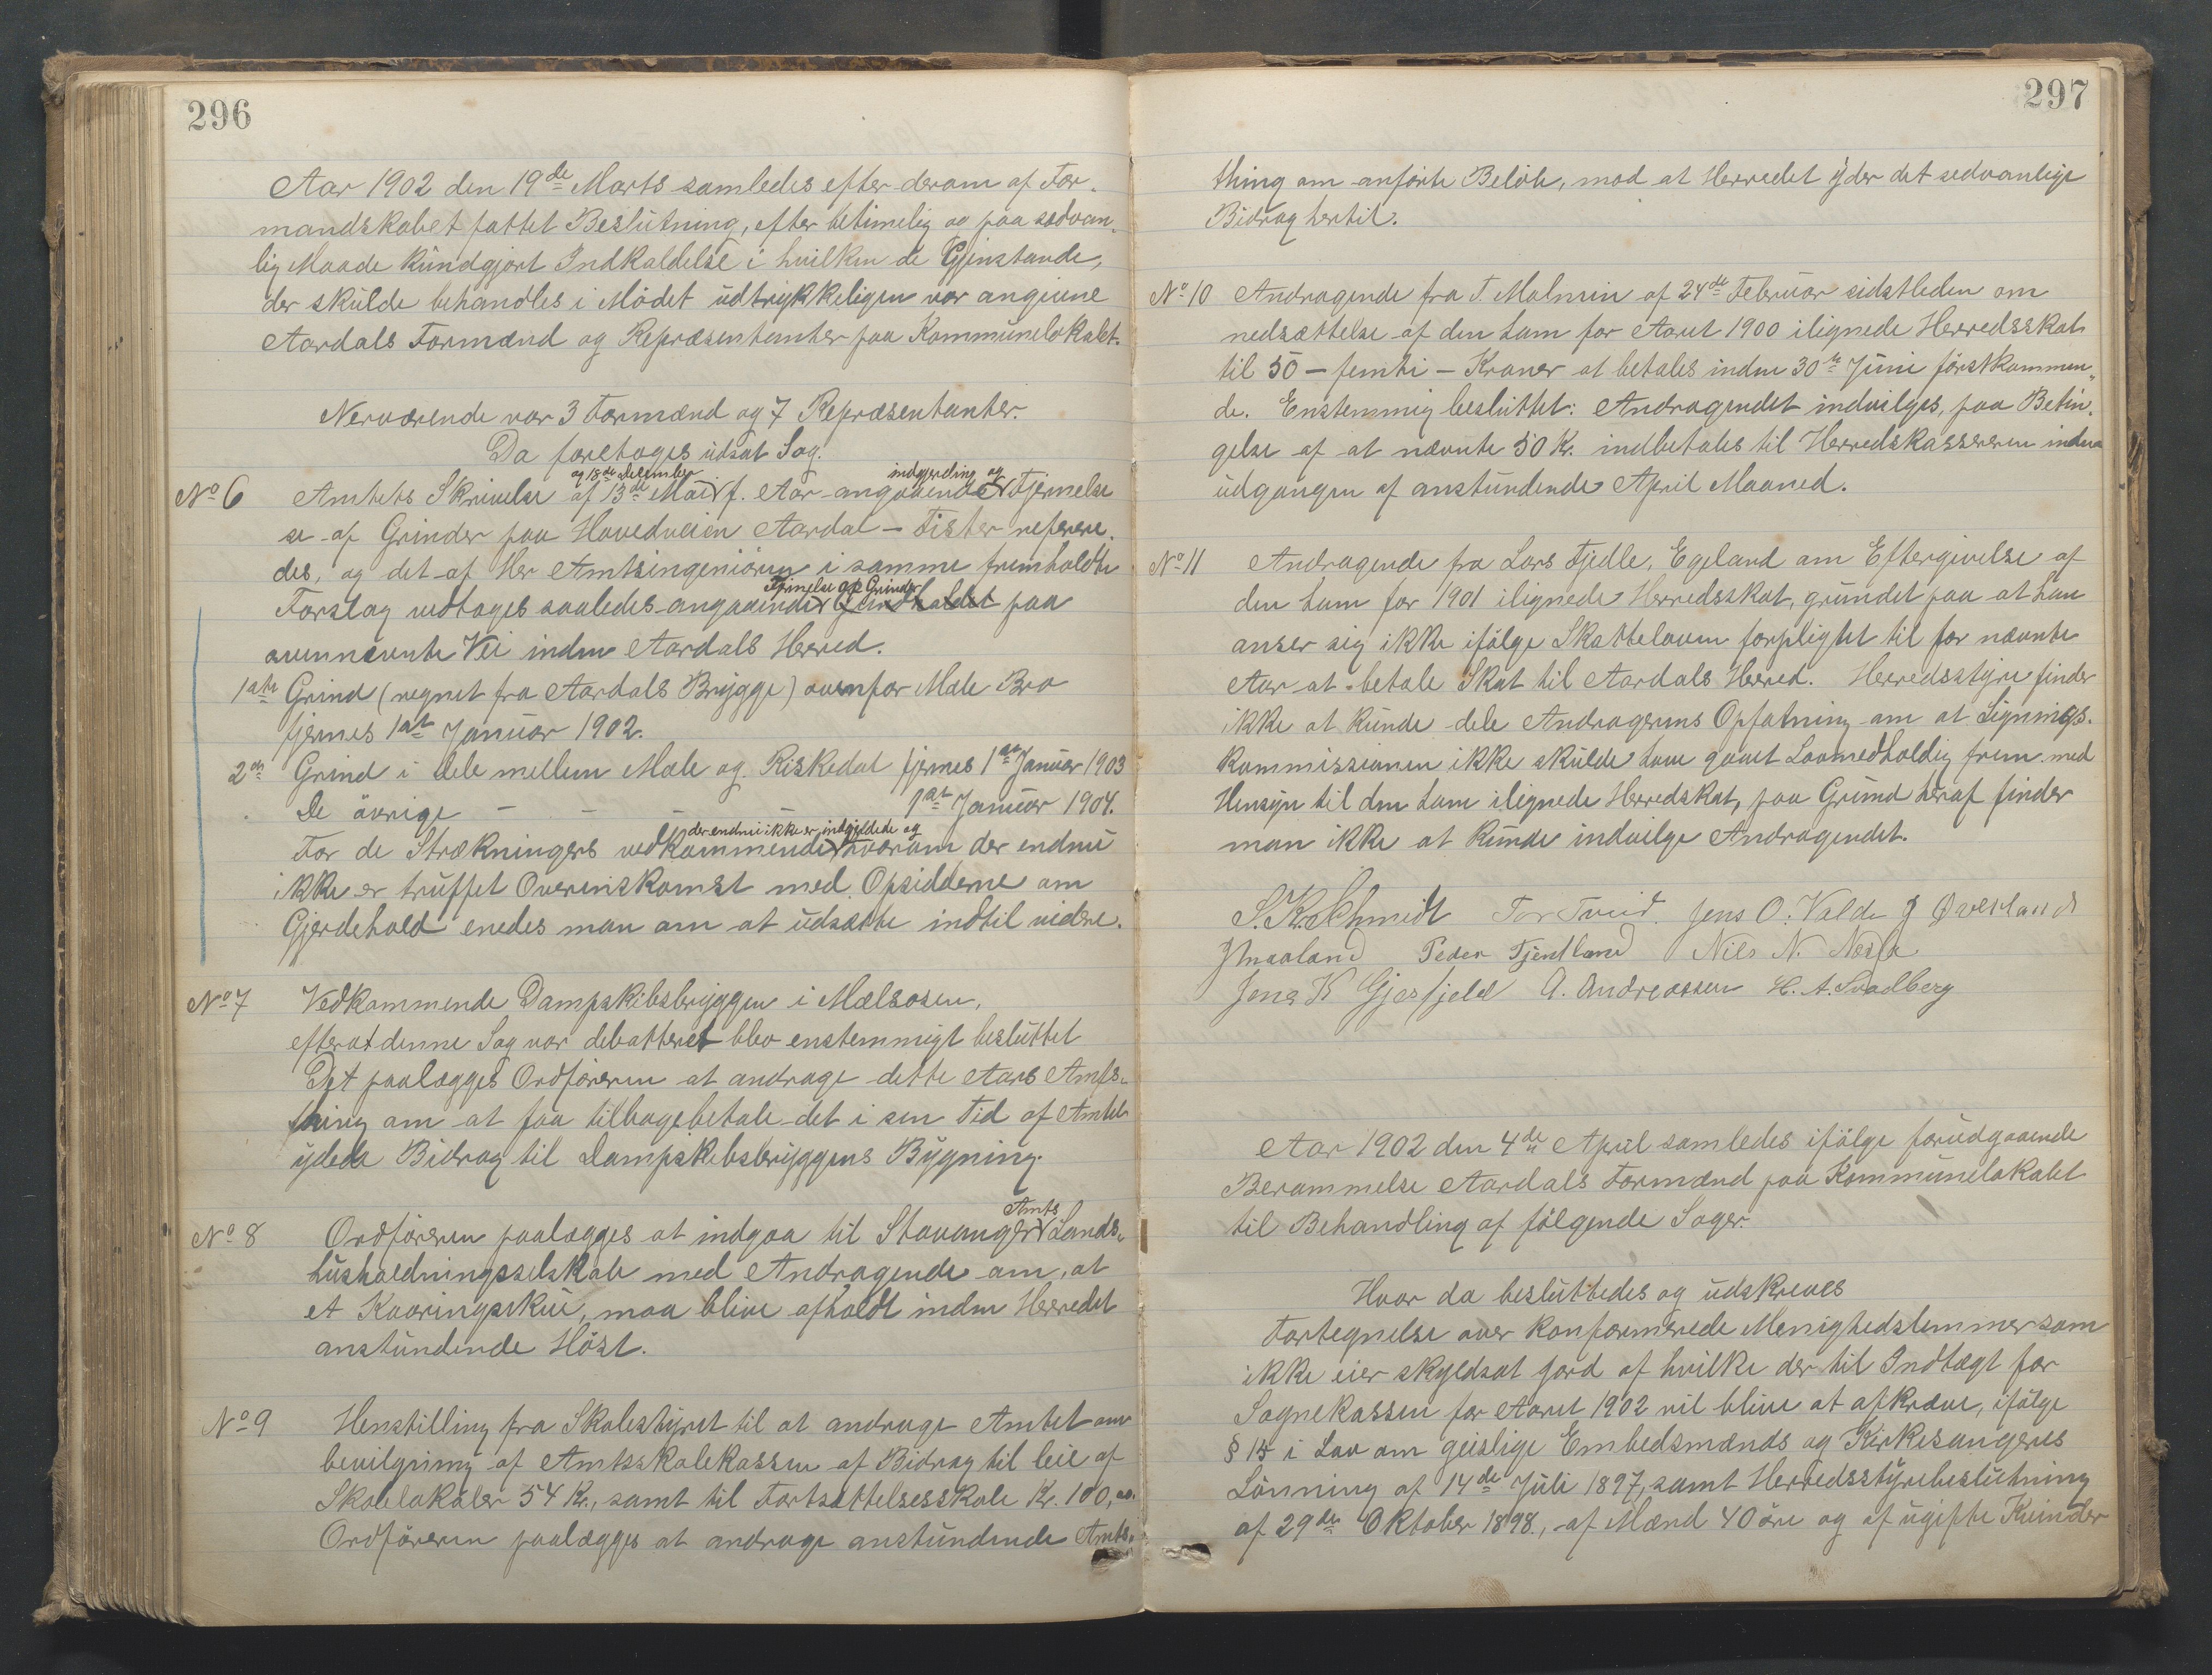 296
Aar 1902 den 19de Marts samledes efter derom af For-
mandskabet fattet Beslutning, efter betimelig og paa sedvan-
lig Maade kundgjort Indkaldelse i hvilken de Gjenstande,
der skulde behandles i Mödet udtrykkeligen var angivne
Aardals Formænd og Repræsentanter paa Kommunelokalet.
Nerværende var 3 Formænd og 7 Repræsentanter.
Da foretoges udsat Sag.
og 18de Desember indgjerding og
No 6 Amtets Skrivelse af 13de Mai f. Aar angaaende Fjernelse
se af Grinder paa Hovedveien Aardal - Tister refere-
des, og det af Her Amtsingeniören i samme fremholdte
Fjernelse af Grinder
Forslag vedtoges saaledes angaaende Grindholdet paa
ovennevnte Vei inden Aardals Herred.
1ste Grind (regnet fra Aardals Brygge) ovenfor Mæle Bro
fjernes 1ste Januar 1902.
2den Grind i Dele mellem Mæle og Riskedal fjernes 1ste Januar 1903
De övrige - - - 1ste Januar 1904.
der endnu ikke er indgjerdede og
For de Strækningers vedkommende hvorom der endnu
ikke er truffet Overenskomst med Opsidderne om
Gjerdehold enedes man om at udsætte indtil videre.
No 7 Vedkommende Dampskibsbryggen i Mælsosen,
efterat denne Sag var debatteret blev enstemmigt besluttet
Det paalægges Ordföreren at andrage dette Aars Amts-
thing om at faa tilbagebetale det i sen Tid af Amtet
ydede Bidrag til Dampskibsbryggens Bygning.
Amts
No 8 Ordföreren paalægges at indgaa til Stavanger Lands-
husholdningsselskab med Andragende om, at
et Kaaringsskue, maa blive afholdt inden Herredet
anstundende Höst.
No 9 Henstilling fra Skolestyret til at andrage Amtet om
bevilgning af Amtsskolekassen af Bidrag til leie af
Skolelokaler 54 Kr., samt til Fortsættelsesskole Kr. 100,00.
Ordföreren paalægges at andrage anstundende Amts-
297
thing om anförte Belöb, mod at Herredet yder det sedvanlige
Bidrag hertil.
No 10 Andragende fra T. Malmin af 24de Februar sidstleden om
nedsættelse af den ham for Aaret 1900 ilignede Herredsskat
til 50 - femti - Kroner at betales inden 30te Juni förstkommen-
de. Enstemmig besluttet: Andragendet indvilges, paa Betin-
gelse af at nævnte 50 Kr. indbetales til Herredskassereren inden
udgangen af anstundende April Maaned.
No 11 Andragende fra Lars Fjedle, Egeland om Eftergivelse af
den ham for 1901 ilignede Herredsskat, grundet paa at han
anser sig ikke ifölge Skatteloven forpligtet til for nævnte
Aar at betale Skat til Aardals Herred. Herredsstyre finder
ikke at kunde dele Andragerens Opfatning om at Lignings-
kommissionen ikke skulde have gaaet Lovmedholdig frem med
Hensyn til den ham ilignede Herredskat, paa Grund heraf finder
man ikke at kunde indvilge Andragendet.
S. K. Schmidt Tor Tveid. Jens O. Valde J Överland
J Maaland Peder Fjentland Nils N. Nessa
Jens K Gjesfjeld A. Andreassen H. A. Svadberg
Aar 1902 den 4de April samledes ifölge forudgaaende
Berammelse Aardals Formænd paa Kommunelokalet
til Behandling af fölgende Sager.
Hvor da besluttedes og udskreves
Fortegnelse over konfermerede Menighedslemmer som
ikke eier skyldsat Jord af hvilke der til Indtægt for
Sognekassen for Aaret 1902 vil blive at afkræve, ifölge
§ 15 i Lov om geislige Embedsmænds og Kirkesangeres
Lönning af 14de Juli 1897, samt Herredsstyrebeslutning
af 29de Oktober 1898., af Mænd 40 öre og af ugifte Kvinder